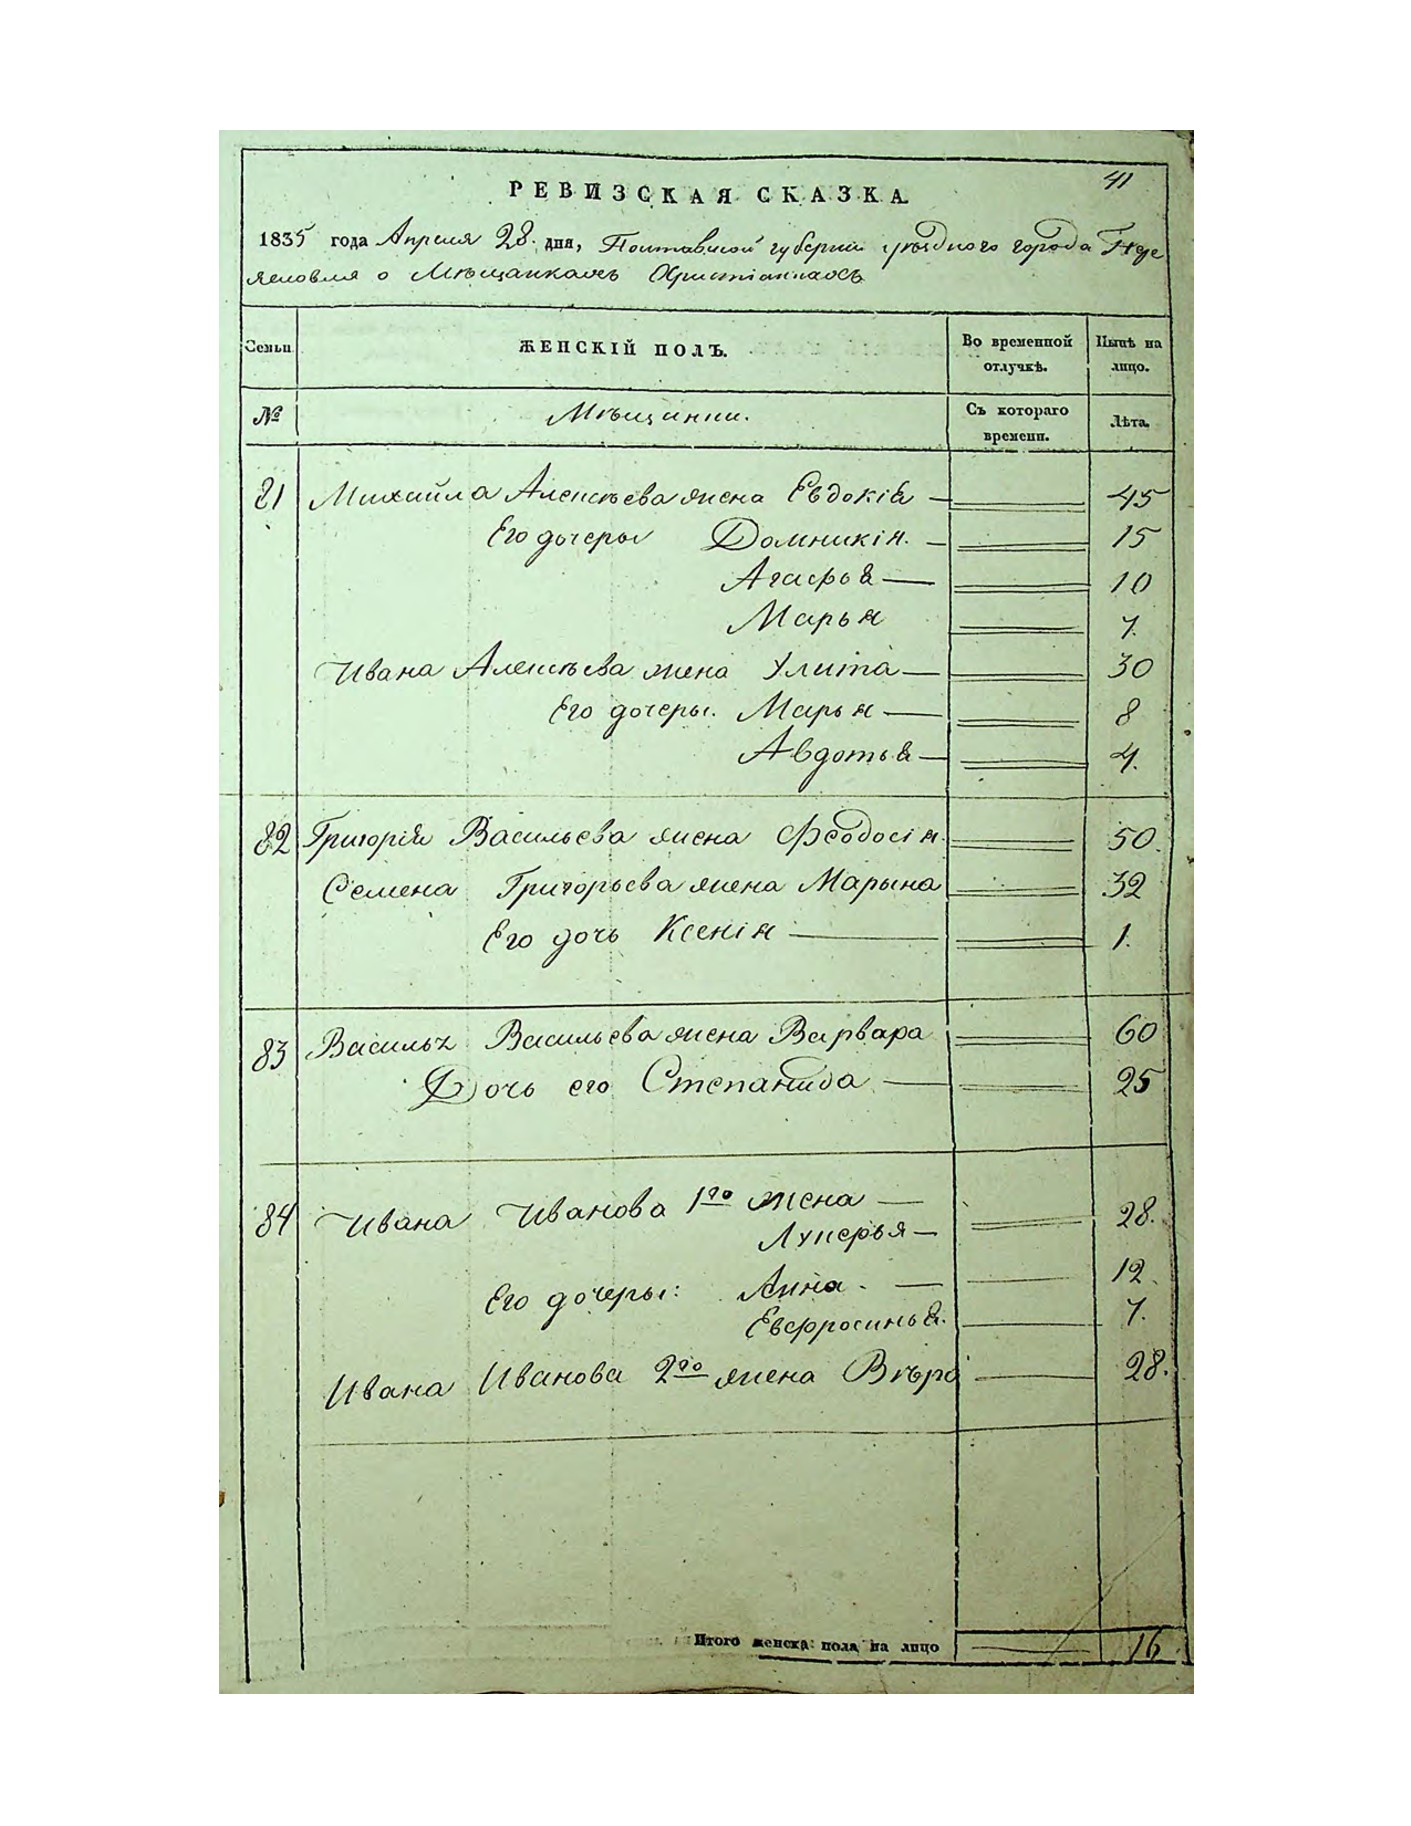 41
РЕВИЗСКАЯ СКАЗКА.
1835 года Апреля 28. дня, Полтавской губернии уѣзднаго города Пере
яславля о Мѣщанкахъ Христіанкахъ
Семьи
ЖЕНСКІЙ ПОЛЪ.
Во временной отлучкѣ.
Нынѣ на лицо.
№
Мѣщанки.
Съ котораго времени.
Лѣта.
81 Михайла Алексѣева жена Евдокія — 45
Его дочеры Домникія. — 15
Агафья — 10
Марья 7.
Ивана Алексѣева жена Улита — 30
Его дочеры. Марья — 8
Авдотья — 4.
82 Григорія Васильева жена Феодосія. 50.
Семена Григорьева жена Марына 32
Его дочь Ксенія — 1.
83 Василья Васильева жена Варвара 60
Дочь его Степанида — 25
84 Ивана Иванова 1го жена —
Лукерья — 28.
Его дочеры: Анна. — 12.
Евфросинья. 7.
Ивана Иванова 2го жена Вѣра 28.
Итого женска: пола на лицо 16